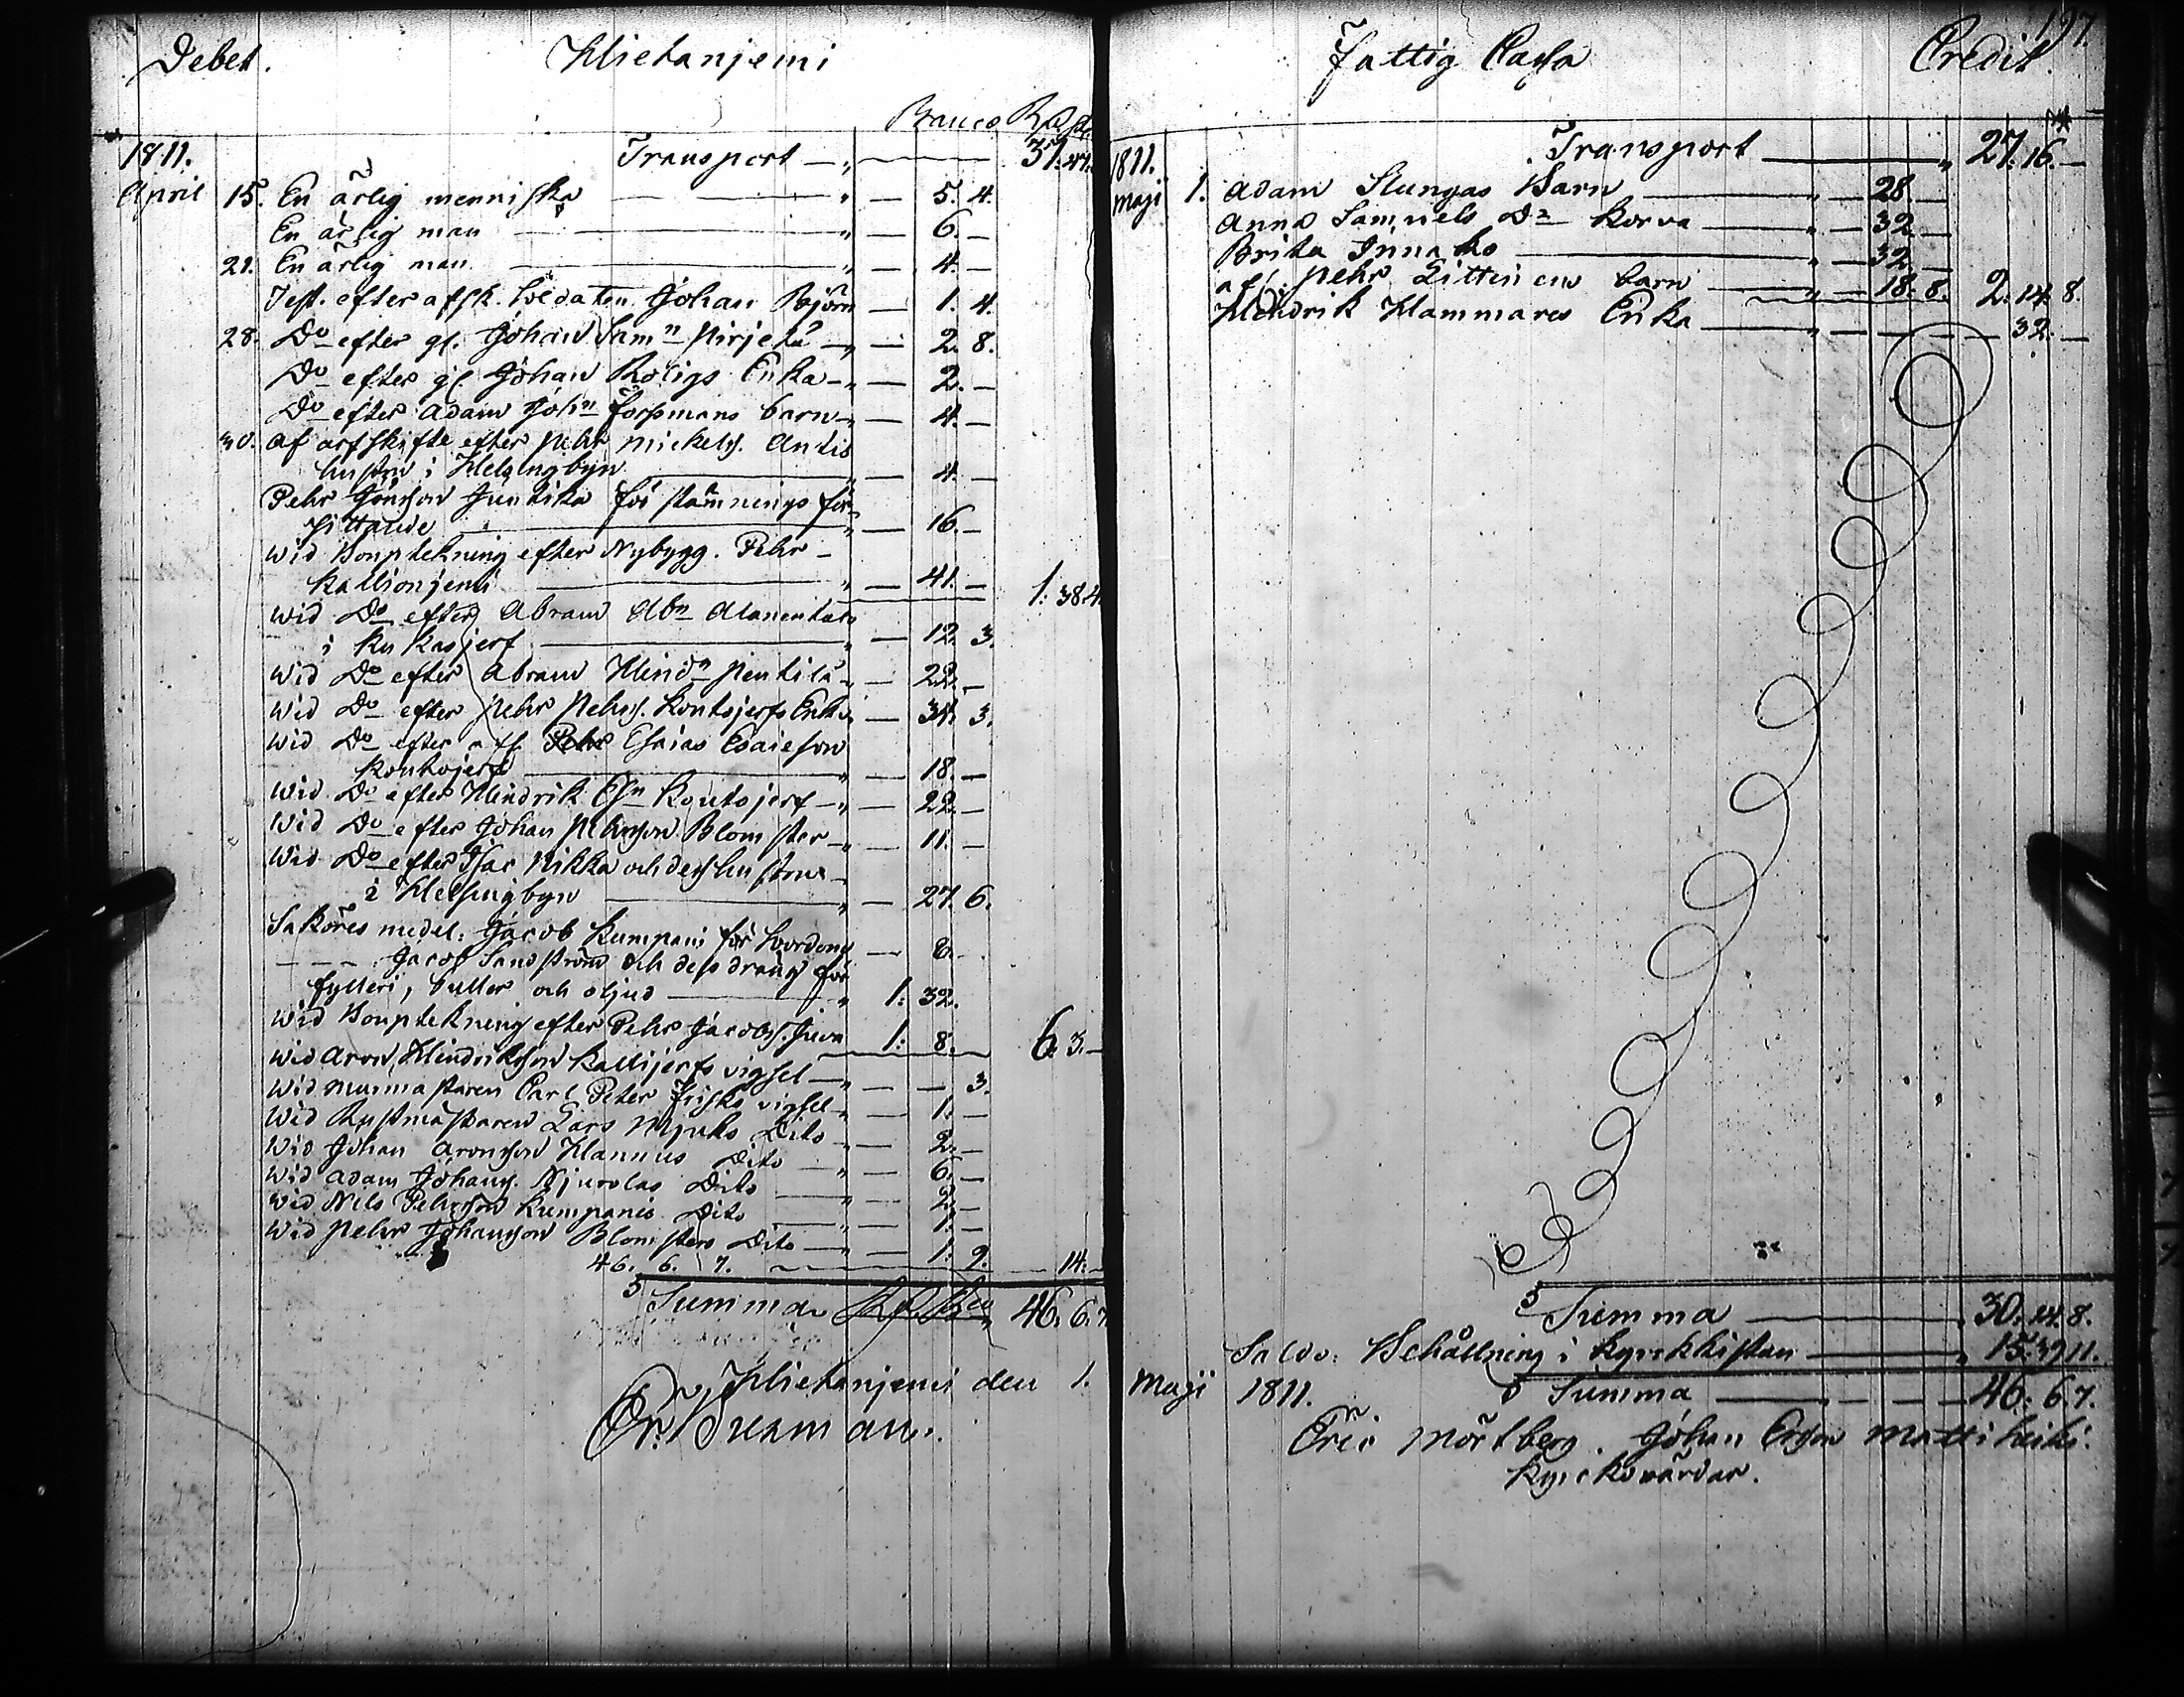 Debet. Hietaniemi
Banco Rd. sk.
1811. Transport — 37: 47.
April 15. En ärlig menniska — 5. 4.
En ärlig man — 6. —
21. En ärlig man — 4. —
Test. efter afsk. Soldaten Johan Björn — 1. 4.
28. Do efter gl. Johan Samn Pirjetä — 2. 8.
Do efter gl. Johan Roligs Enka — 2. —
Do efter Adam John Forssmans barn — 4. —
30. Af arfskifte efter Pehr Mickels. Antis
hustru i Helsingbyn — 4. —
Pehr Jönsson Juntika för stämnings för-
sittande — 16. —
Wid Bouptekning efter Nybygg. Pehr
Kallionjemi — 41. — 1: 38. 4.
Wid Do efter Abram Abn Alanentalo
i Kukasjerf — 12. 3.
Wid Do efter Abram Hindn Pentilä — 22. —
Wid Do efter Pehr Pehrs. Kontsjerfs Enka — 34. 3.
Wid Do efter afl. Esaias Esaieson
Kontojerf — 18. —
Wid Do efter Hindrik Esn Kontsjerf — 22. —
Wid Do efter Johan Pehrsson Blomster — 11. —
Wid Do efter Isac Nikka och dess hustru
i Helsingbyn — 27. 6.
Saköres medel: Jacob Kumpani för hordom — 6. —
— Jacob Sandström och dess dräng för
fylleri, buller och oljud — 1: 32.
Wid Bouptekning efter Pehr Jacobs. Juva 1: 8. — 6. 3. —
Wid Aron Hindriksson Kallijerfs vigsel — — 3.
Wid Murmästaren Carl Peter Frisks vigsel — 1. —
Wid Rustmästaren Lars Dito — 2. —
Wid Johan Aronsson Hannus Dito — 6. —
Wid Adam Johans. Njurolas Dito — 2. —
Wid Nils Pehrsson Kumpanis Dito — 1. —
Wid Pehr Johansson Blomsters Dito — 1: 9. — 14. —
46. 6. 7.
Summa Rd Bco 46. 6. 7.
Hietanjemi den 1.
197.
Fattig Cassa Credit.
1811. Transport — 27: 16. —
Maji 1. Adam Slungas Barn — 28. —
Anna Samuels Dr Korva — 32. —
Brita Innako — 32. —
afl. Pehr Littinens barn — 18: 8. 2. 14. 8.
Hendrik Hammares Enka — 32. —
Summa — 30. 14. 8.
Saldo: Behållning i kyrckkistan — 15: 39. 11.
Maji 1811. Summa — 46: 6. 7.
Eric Mörtberg. Johan Ersson Mattiheiki.
Kyrckovärdar.